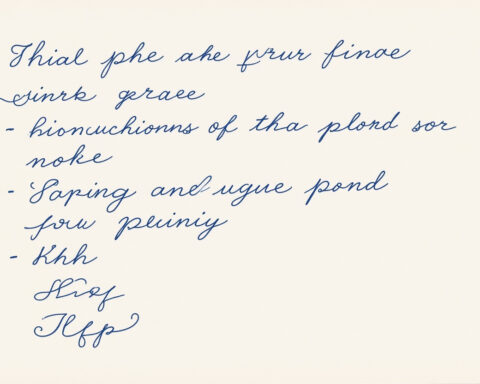 Thial phe ahe yrur finoe
sinrk graee
- hioncuchionns of tha plond sor
noke
- Saping and ugue pond
fou peiniy
- Khh